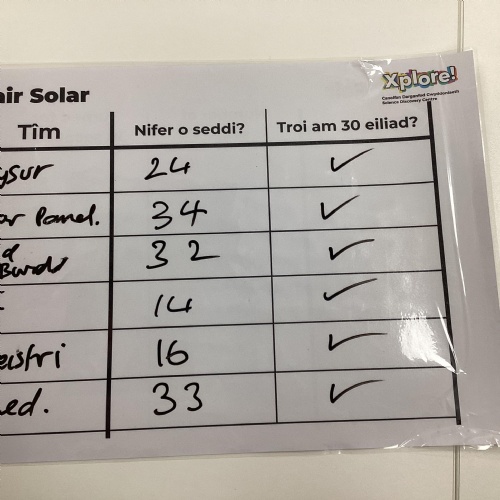 Xplore!
Canolfan Darganfod Gwyddoniaeth
Science Discovery Centre
air Solar
Tîm Nifer o seddi? Troi am 30 eiliad?
ysur 24 ✓
ar Panel. 34 ✓
32 ✓
14 ✓
eistri 16 ✓
ed. 33 ✓